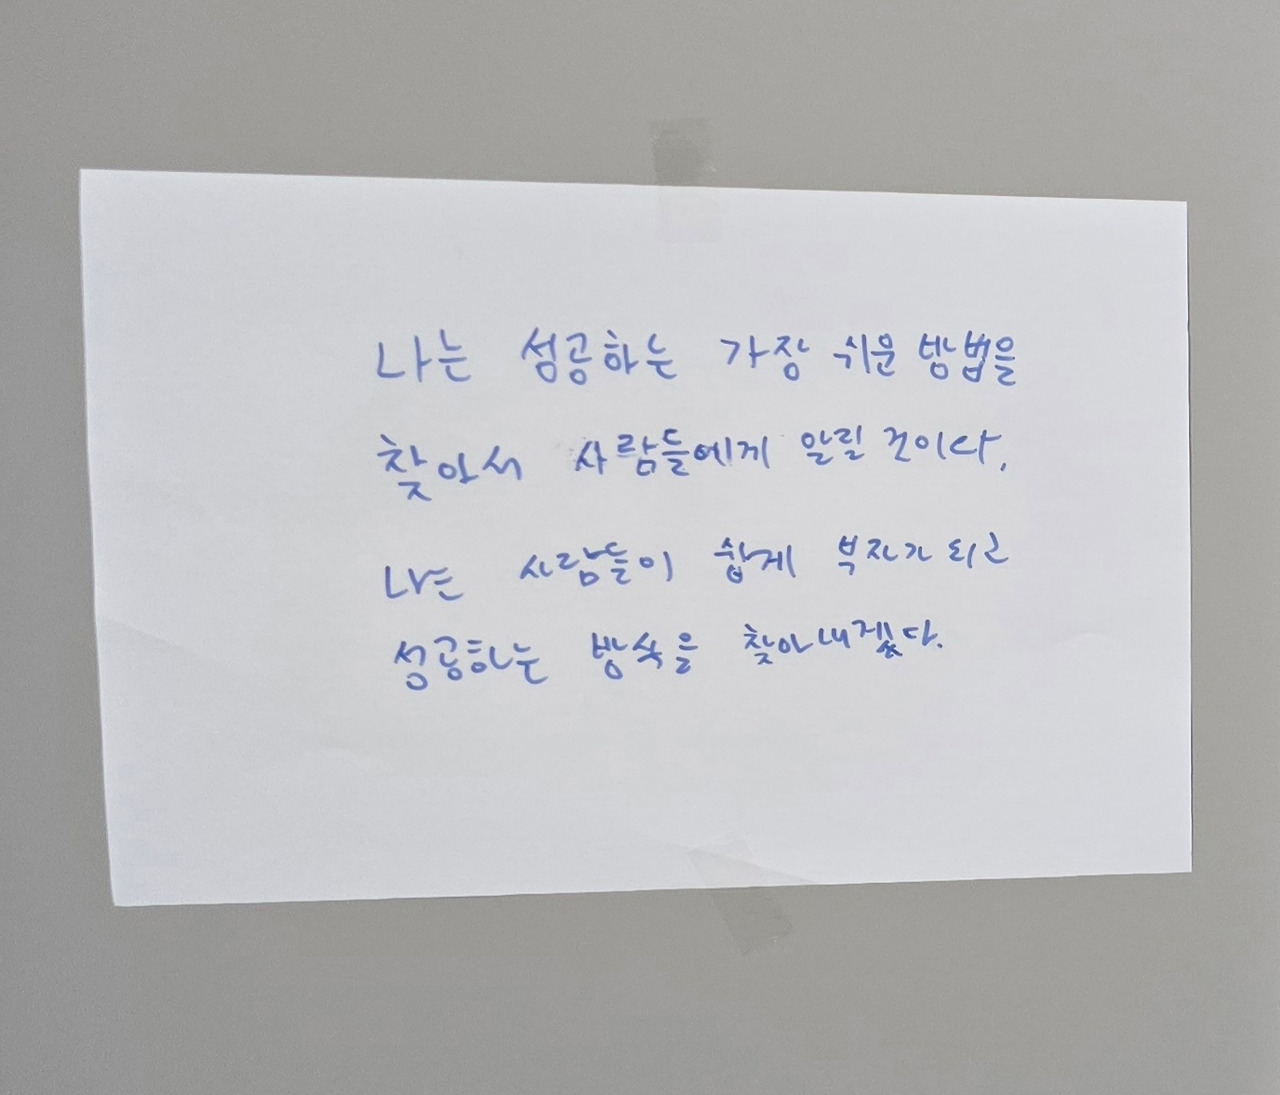 나는 성공하는 가장 쉬운 방법을
찾아서 사람들에게 알릴 것이다.
나는 사람들이 쉽게 부자가 되고
성공하는 방식을 찾아내겠다.